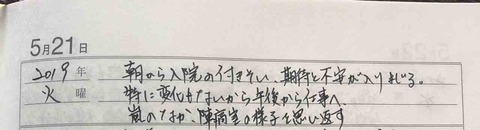 5月21日
2019年 朝から入院の付きそい、期待と不安が入りまじる。
火曜 特に変化もないから午後から仕事へ、
嵐のなか、陣痛室の様子を思い返す